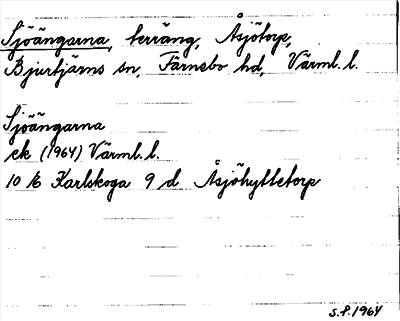 Sjöängarna, terräng, Åsjötorp,
Bjurtjärns sn, Färnebo hd, Värml. l.
Sjöängarna
ek (1964) Värml. l.
10 1/6 Karlskoga 9 d Åsjöhyttetorp
S.P. 1964